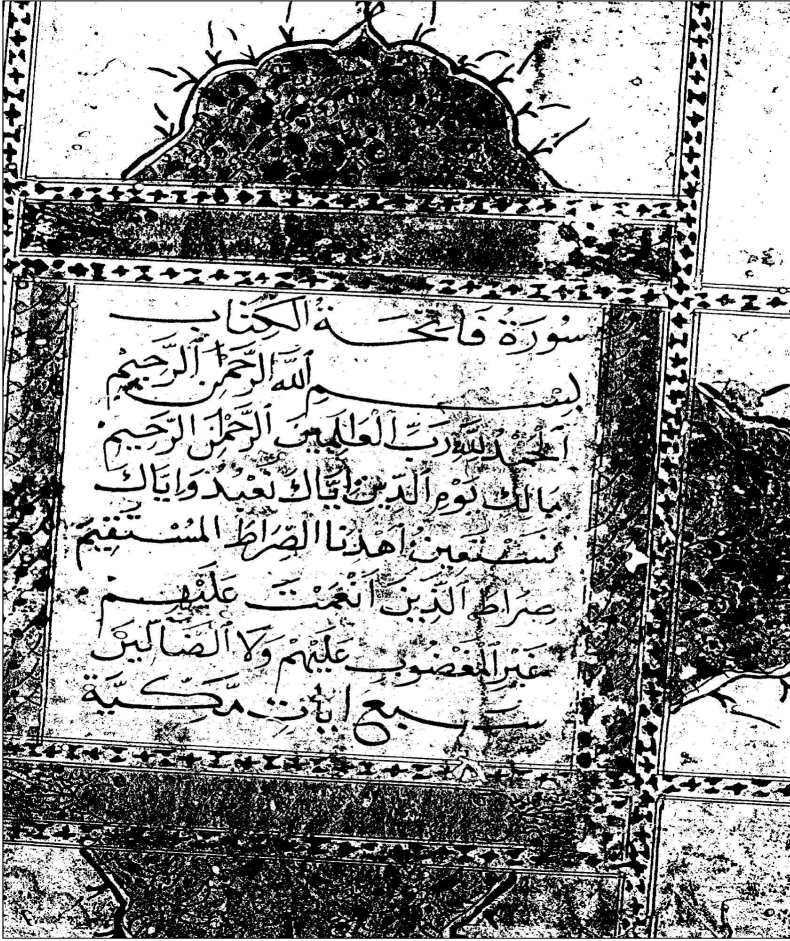 سُورَةُ فَاتِحَةُ الْكِتَاب
بِسْمِ ٱللَّهِ الرَّحْمٰنِ ٱلرَّحِيمِ
ٱلْحَمْدُ لِلَّهِ رَبِّ ٱلْعَالَمِينَ ٱلرَّحْمٰنِ ٱلرَّحِيمِ
مَالِكِ يَوْمِ ٱلدِّينِ اِيَّاكَ نَعْبُدُ وَاِيَّاكَ
نَسْتَعِينُ ٱهْدِنَا الصِّرَاطَ الْمُسْتَقِيمَ
صِرَاطَ ٱلَّذِينَ اَنْعَمْتَ عَلَيْهِمْ
غَيْرِ الْمَغْضُوبِ عَلَيْهِمْ وَلَا ٱلضَّالِّينَ
سَبْعُ اٰيَاتٍ مَّكِّيَّة